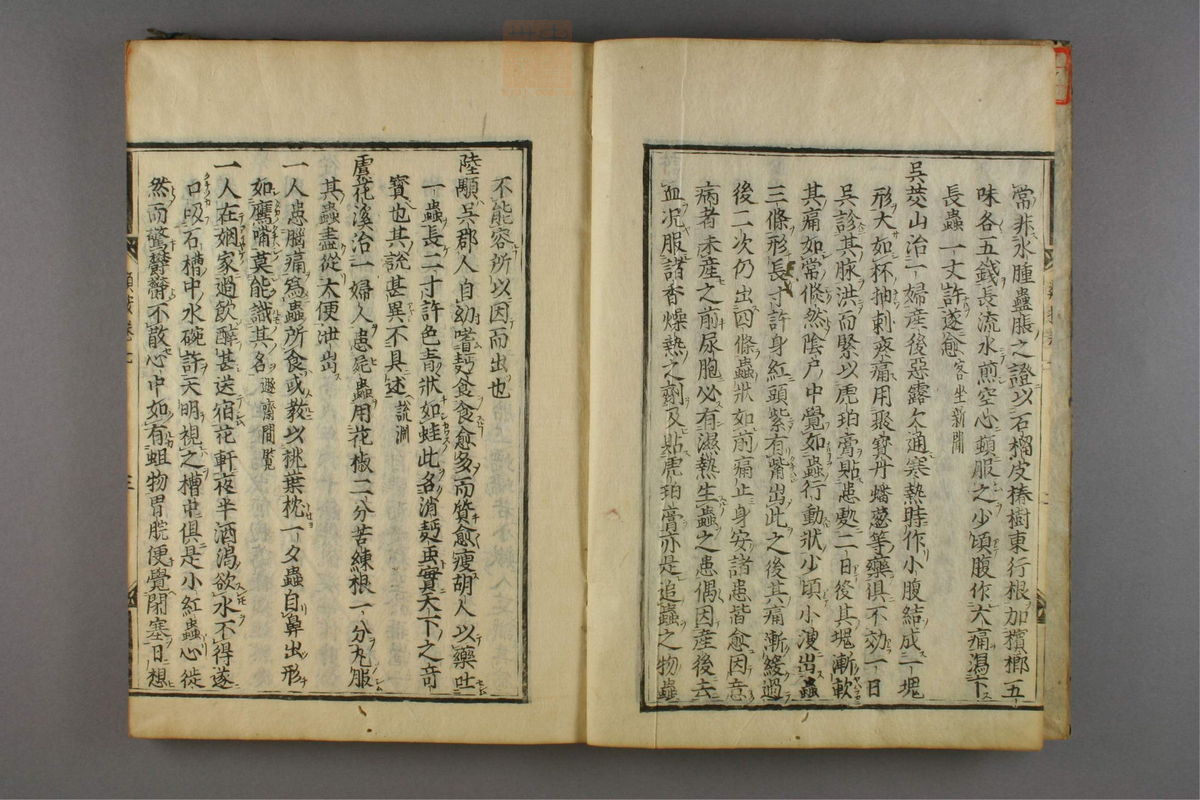 常非水腫蠱脹之證以石榴皮椿樹東行根加檳榔五
味各五錢長流水煎空心頓服之少頃腹作大痛瀉下
長蟲一丈許遂愈客坐新聞
吳茭山治一婦産後惡露欠通寒熱時作小腹結成一塊
形大如杯抽刺疼痛用聚寶丹蟠葱等藥俱不効一日
吳診其脉洪而緊以虎珀膏貼患處二日後其塊漸軟
其痛如常倏然陰户中覺如蟲行動狀少頃小溲出蟲
三條形長寸許身紅頭紫有嘴出此之後其痛漸緩過
後二次仍出四條蟲狀如前痛止身安諸患皆愈因意
病者未産之前尿胞必有濕熱生蟲之患偶因産後去
血况服諸香燥熱之劑及貼虎珀膏亦是追蟲之物蟲
不能容所以因而出也
陸顒吳郡人自幼嗜麪食食愈多而質愈瘦胡人以藥吐
一蟲長二寸許色青狀如蛙此名消麪虫實天下之奇
寶也其說甚異不具述説淵
盧花溪治一婦人患屍蟲用花椒二分苦練根一分丸服
其蟲盡從大便泄出
一人患腦痛爲蟲所食或教以桃葉枕一夕蟲自鼻出形
如鷹嘴莫能識其名遯齋間覽
一人在姻家過飲醉甚送宿花軒夜半酒渴欲水不得遂
口吸石槽中水碗許天明視之槽中俱是小紅蟲心徙
然而驚欝欝不散心中如有蛆物胃脘便覺閉塞日想
三